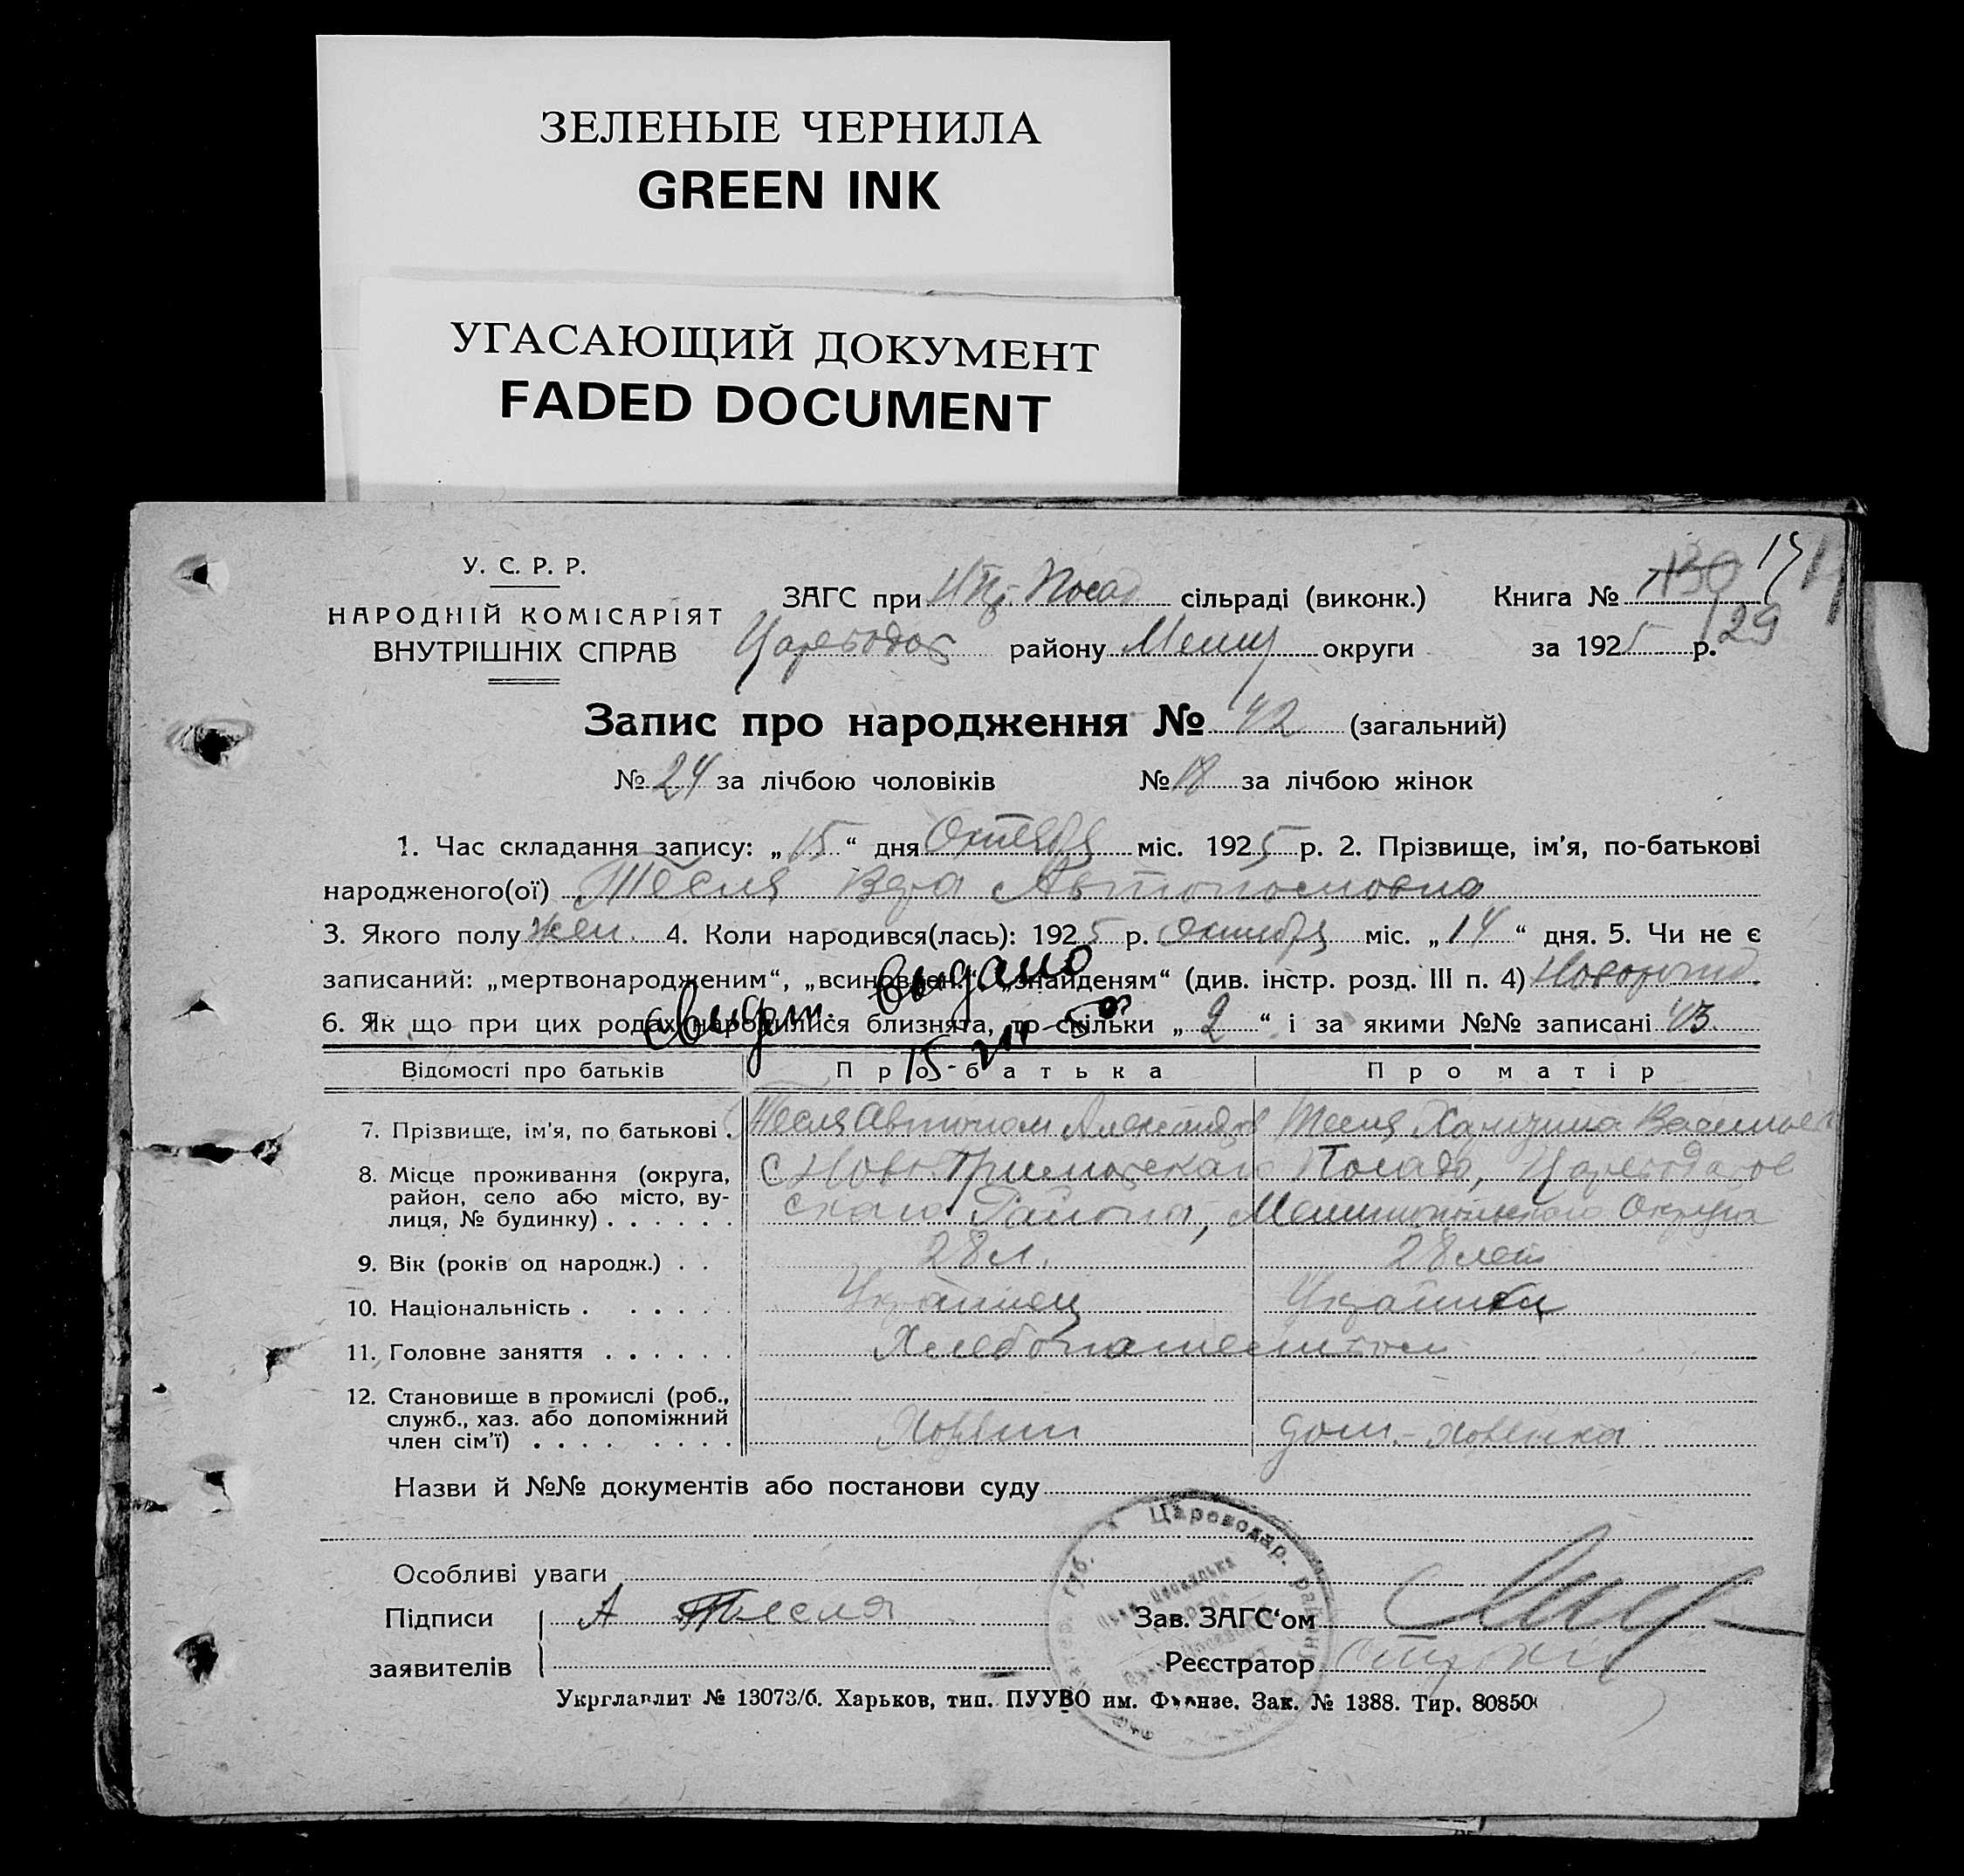 ЗЕЛЕНЫЕ ЧЕРНИЛА
GREEN INK
УГАСАЮЩИЙ ДОКУМЕНТ
FADED DOCUMENT
У. С. Р. Р.
НАРОДНІЙ КОМІСАРІЯТ
ВНУТРІШНІХ СПРАВ
ЗАГС при Посад сільраді (виконк.) Книга № 130
129
району округи за 1925 р.
Запис про народження № 42 (загальний)
№ 24 за лічбою чоловіків № 18 за лічбою жінок
1. Час складання запису: „15“ дня Октября міс. 1925 р. 2. Прізвище, ім'я, по-батькові
народженого(ої) Тесля Вера Автономовна
3. Якого полу жен. 4. Коли народився(лась): 1925 р. Октября міс. „14“ дня. 5. Чи не є
записаний: „мертвонародженим“, „всиновлен.“, „знайденям“ (див. інстр. розд. III п. 4) Новорожд.
свидет. выдано
6. Як що при цих родах народилися близнята, то скільки „2“ і за якими №№ записані 43.
Відомості про батьків Про батька Про матір
7. Прізвище, ім'я, по батькові . Тесля Автоном Александров Тесля Харитина Васильев
8. Місце проживання (округа, район, село або місто, вулиця, № будинку) . . . . . . с Ново Посада,
ского Района, Мелитопольского Округа
9. Вік (років од народж.) . . 28 л. 28 лет
10. Національність . . . . . . Украинец Украинка
11. Головне заняття . . . . . . Хлебопашеством
12. Становище в промислі (роб., служб., хаз. або допоміжний член сім'ї) . . . . . . . . Хозяин дом.-хозяйка
Назви й №№ документів або постанови суду
Особливі уваги
Підписи А Тесля Зав. ЗАГС'ом
заявителів Реєстратор
Укрглавлит № 13073/б. Харьков, тип. ПУУВО им. Фрунзе. Зак. № 1388. Тир. 80850
Цареводар. район